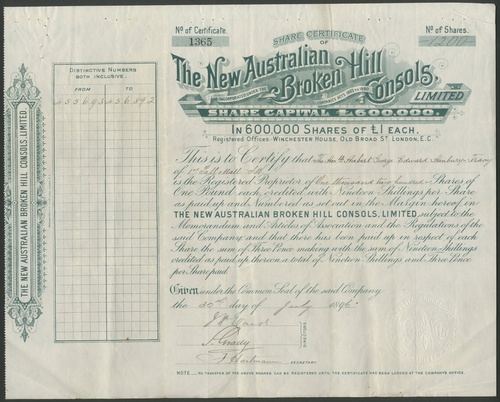 No of Certificate.
1365
No of Shares.
1200
SHARE CERTIFICATE
OF
The New Australian
Broken Hill
Consols,
LIMITED
SHARE CAPITAL £600,000.
IN 600,000 SHARES OF £1 EACH.
Registered Offices: WINCHESTER HOUSE, OLD BROAD ST LONDON, E.C.
DISTINCTIVE NUMBERS
BOTH INCLUSIVE.
FROM TO
455693 456892
THE NEW AUSTRALIAN BROKEN HILL CONSOLS, LIMITED.
This is to Certify that The Hon Hubert George Edward Hanbury Tracy
of Pall Mall SW
is the Registered Proprietor of One thousand two hundred Shares of
One Pound each, credited with Nineteen Shillings per Share
as paid up and Numbered as set out in the Margin hereof in
THE NEW AUSTRALIAN BROKEN HILL CONSOLS, LIMITED, subject to the
Memorandum and Articles of Association and the Regulations of the
said Company and that there has been paid up in respect of each
Share the sum of Three Pence making with the sum of Nineteen Shillings
credited as paid up thereon a total of Nineteen Shillings and Three Pence
per Share paid.
Given under the Common Seal of the said Company
the 30th day of July 1896.
DIRECTORS
Hartmann SECRETARY
NOTE.—NO TRANSFER OF THE ABOVE SHARES CAN BE REGISTERED UNTIL THE CERTIFICATE HAS BEEN LODGED AT THE COMPANY'S OFFICE.